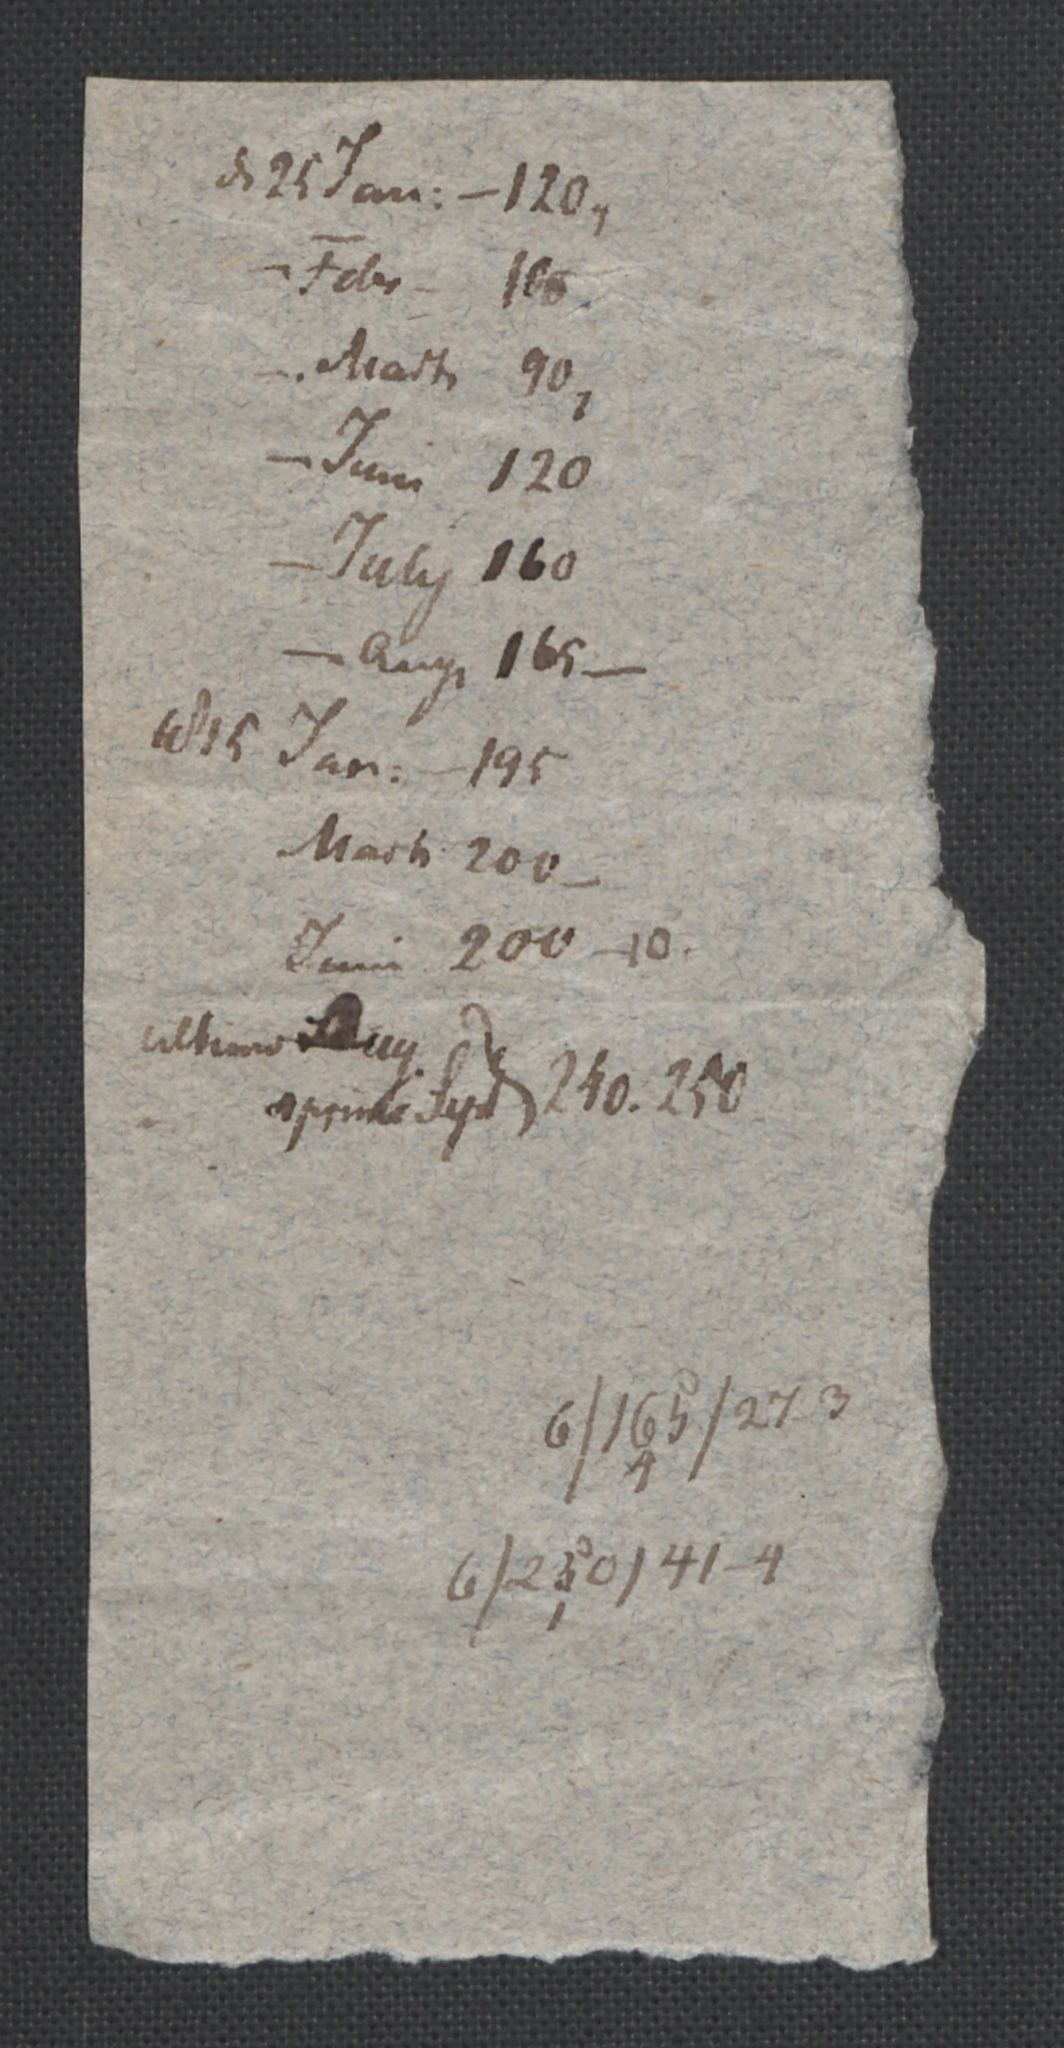 d 25 Jan: – 120,
– Febr – 165
– Marts 90,
– Juni 120
– July 160
– Aug, 165 –
1815 Jan: – 195
Marts 200 –
Junii 200 – 10.
ultimo Aug.
primo Sept } 240. 250
6/165/27 3
4
6/250/41–4
1